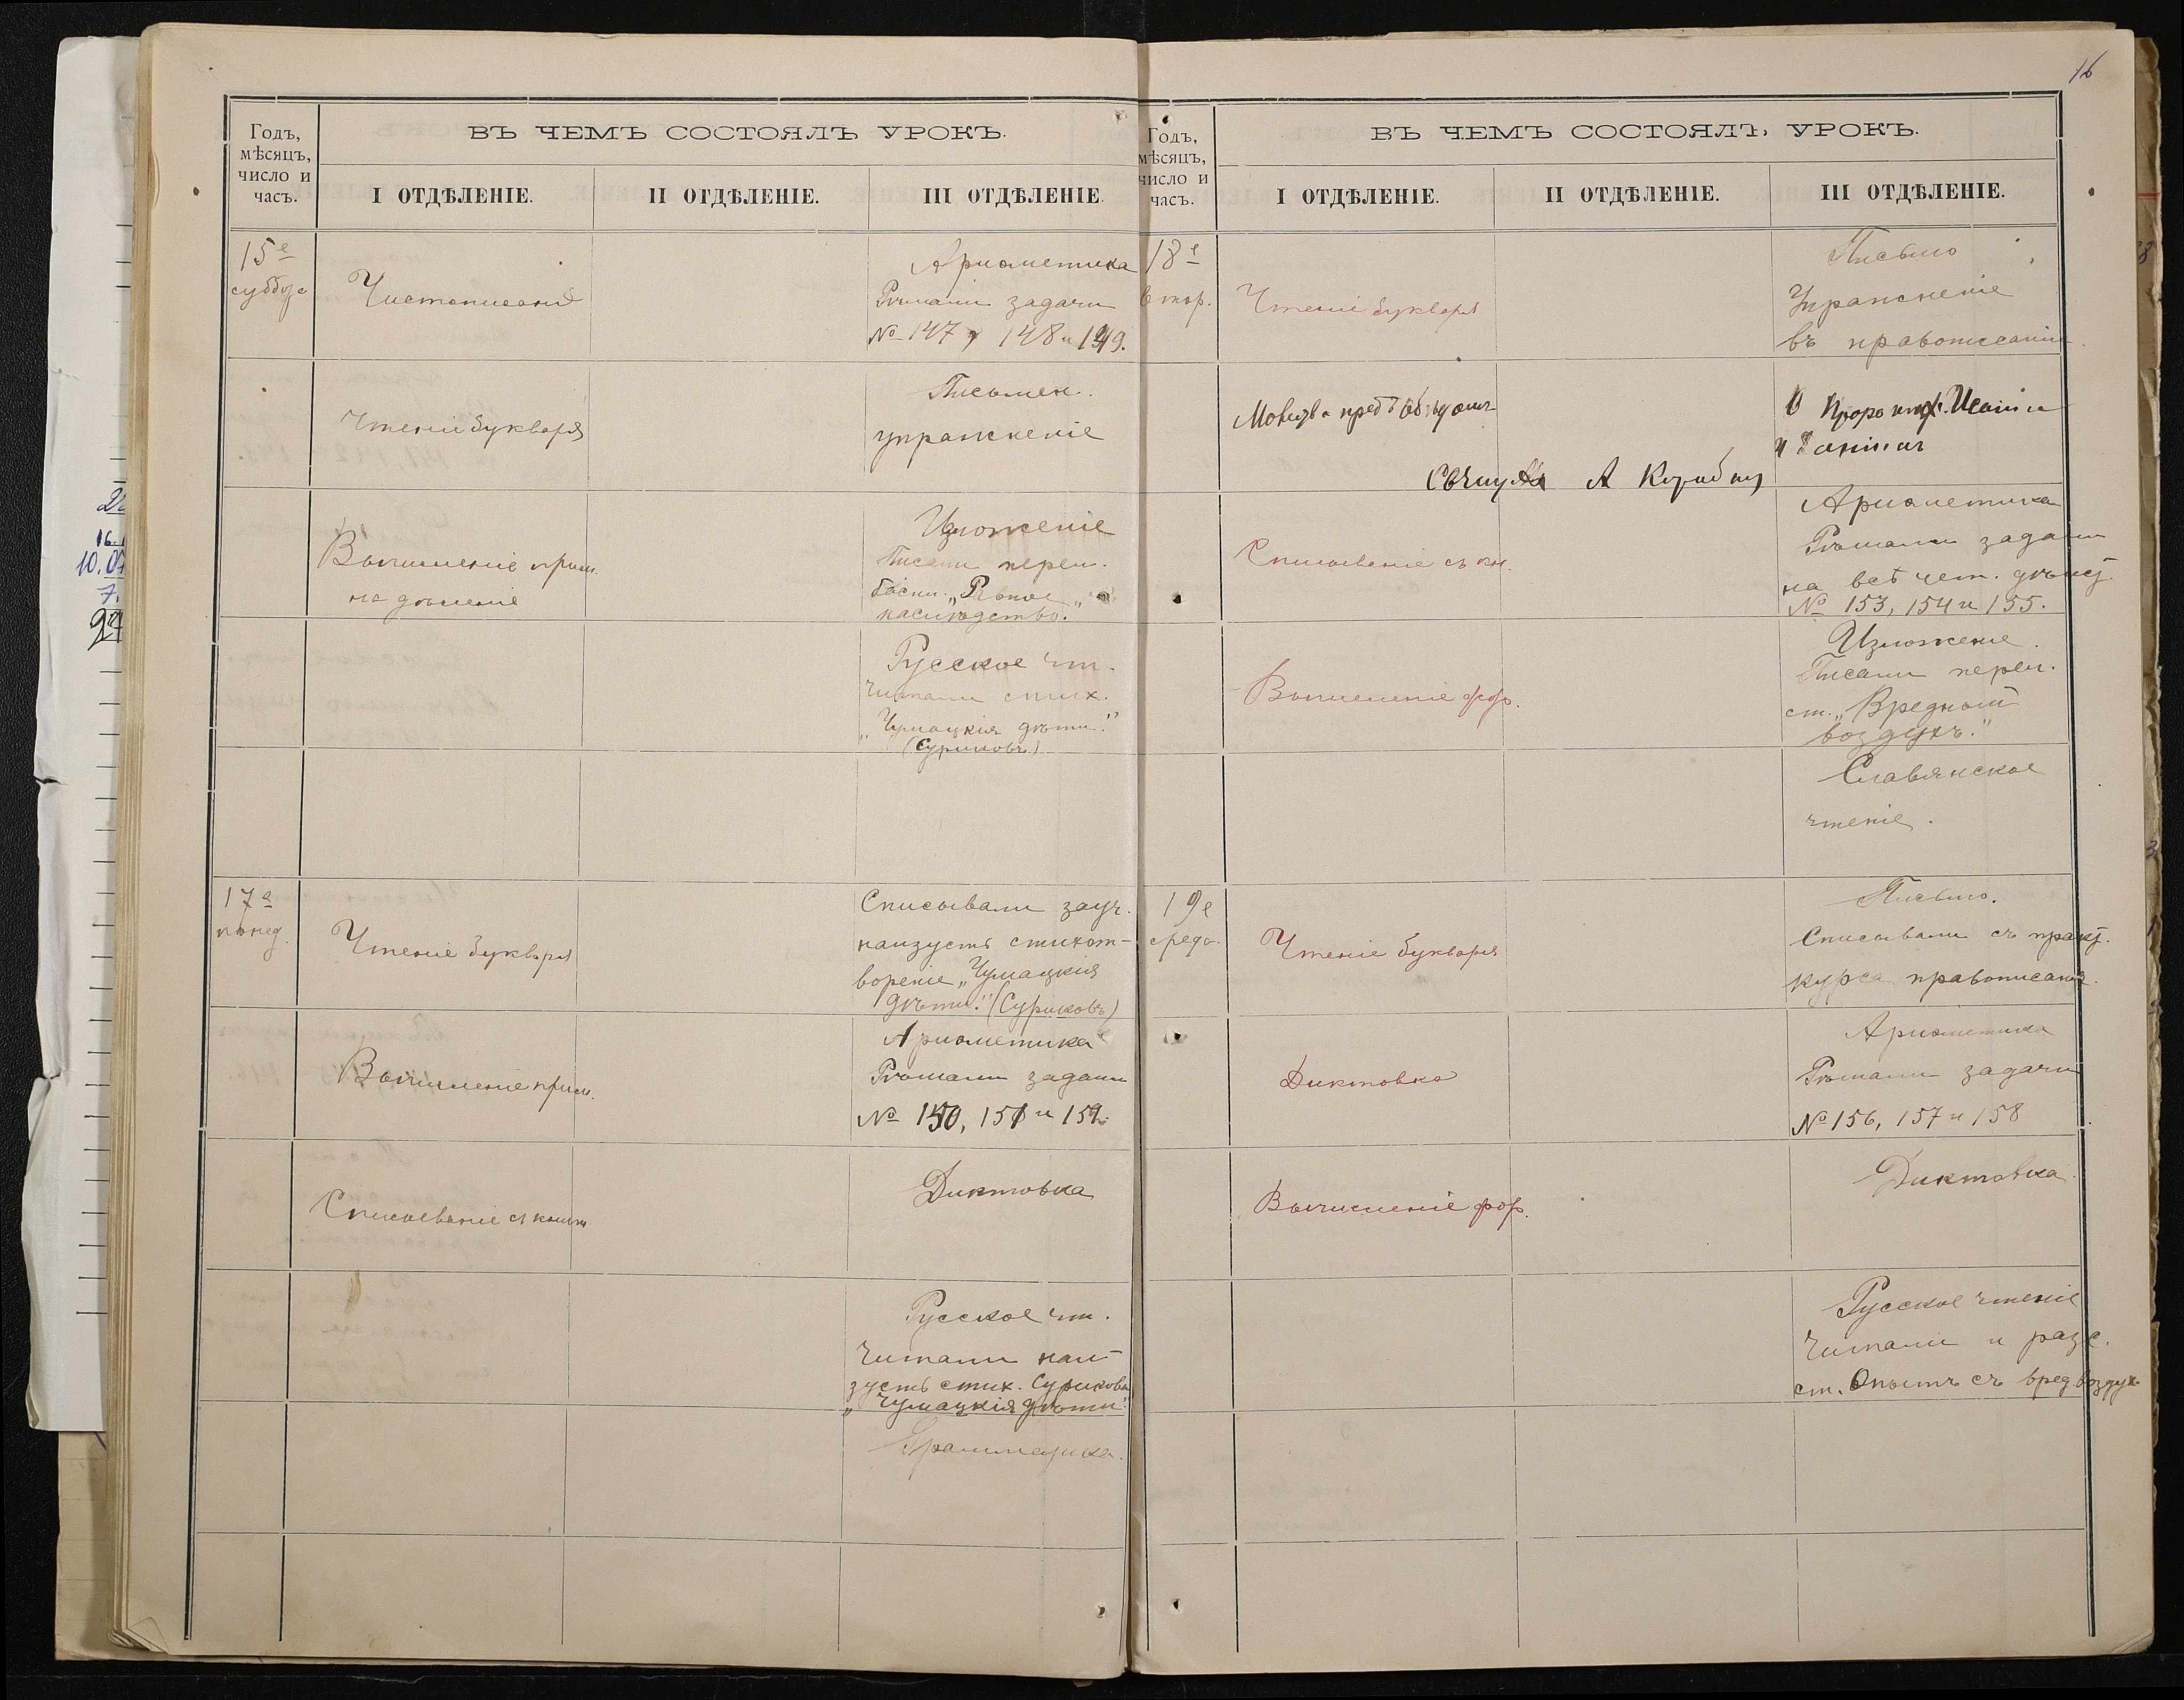 16
Годъ,
мѣсяцъ,
число и
часъ.
ВЪ ЧЕМЪ СОСТОЯЛЪ УРОКЪ.
I ОТДѢЛЕНІЕ.
II ОТДѢЛЕНІЕ.
III ОТДѢЛЕНІЕ.
15е
суббота
Чистописаніе
Ариѳметика
Рѣшали задачи
№ 147, 148 и 149.
Чтеніе букваря
Письмен.
упражненіе
Вычисленіе прим.
на дѣленіе
Изложеніе
Писали перел.
басни
наслѣдство."
Русское чт.
Читали стих.
„Чумацкія дѣти."
(Суриковъ)
17е
понед.
Чтеніе букваря
Списывали зауч.
наизусть стихот-
вореніе „Чумацкія
дѣти." (Суриковъ)
Вычисленіе прим.
Ариѳметика
Рѣшали задачи
№ 150, 151 и 152.
Списываніе съ книги
Диктовка
Русское чт.
Читали наи-
зусть стих. Сурикова
„Чумацкія дѣти"
Грамматика.
Годъ,
мѣсяцъ,
число и
часъ.
ВЪ ЧЕМЪ СОСТОЯЛЪ УРОКЪ.
I ОТДѢЛЕНІЕ.
II ОТДѢЛЕНІЕ.
III ОТДѢЛЕНІЕ.
18е
втор.
Чтеніе букваря
Письмо
Упражненіе
въ правописаніи.
Молитва предъ обѣдомъ
О пророкахъ Исаіи
и Даніилѣ
А
Списываніе съ кн.
Ариѳметика
Рѣшали задачи
на всѣ чет. дѣйст.
№ 153, 154 и 155.
Вычисленіе фор.
Изложеніе.
Писали перел.
ст. „Вредный
воздухъ."
Славянское
чтеніе.
19е
среда.
Чтеніе букваря
Письмо.
Списывали съ практ.
курса правописанія.
Диктовка
Ариѳметика
Рѣшали задачи
№ 156, 157 и 158
Вычисленіе фор.
Диктовка.
Русское чтеніе
Читали и разс.
ст. Опытъ съ вред. воздух